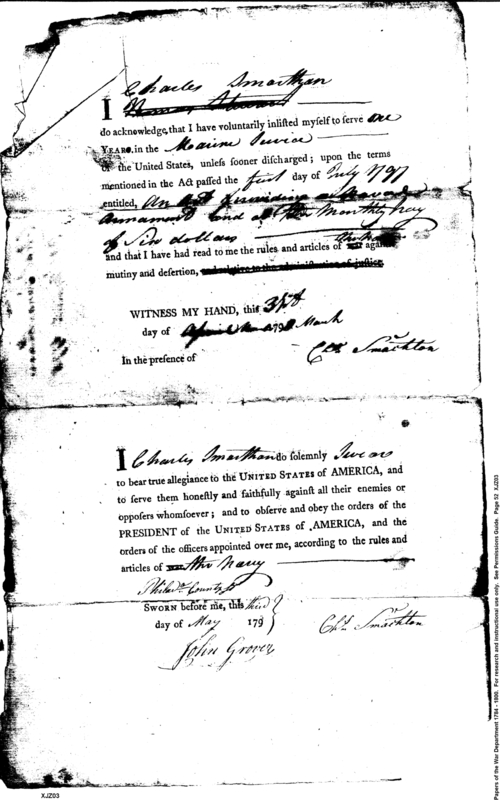 Charles Smarthan
I
do acknowledge, that I have voluntarily inlisted myself to serve one
YEARS, in the Marine Service
of the United States, unless sooner discharged; upon the terms
mentioned in the Act passed the first day of July 1797
entitled, An act providing a Naval
Armament and at the Monthly pay
of Six dollars
and that I have had read to me the rules and articles of war against
mutiny and desertion, and relative to the administration of justice.
WITNESS MY HAND, this 31st
day of April 179 March
In the presence of
Chs. Smackton
I Charles Smarthan do solemnly Swear
to bear true allegiance to the UNITED STATES of AMERICA, and
to serve them honestly and faithfully against all their enemies or
opposers whomsoever; and to observe and obey the orders of the
PRESIDENT of the UNITED STATES of AMERICA, and the
orders of the officers appointed over me, according to the rules and
articles of war the Navy
Philada. County ss
SWORN before me, this third
day of May 179
Chs. Smackton
John Grover
XJZ03
Papers of the War Department 1784 - 1800. For research and instructional use only. See Permissions Guide. Page 52 XJZ03